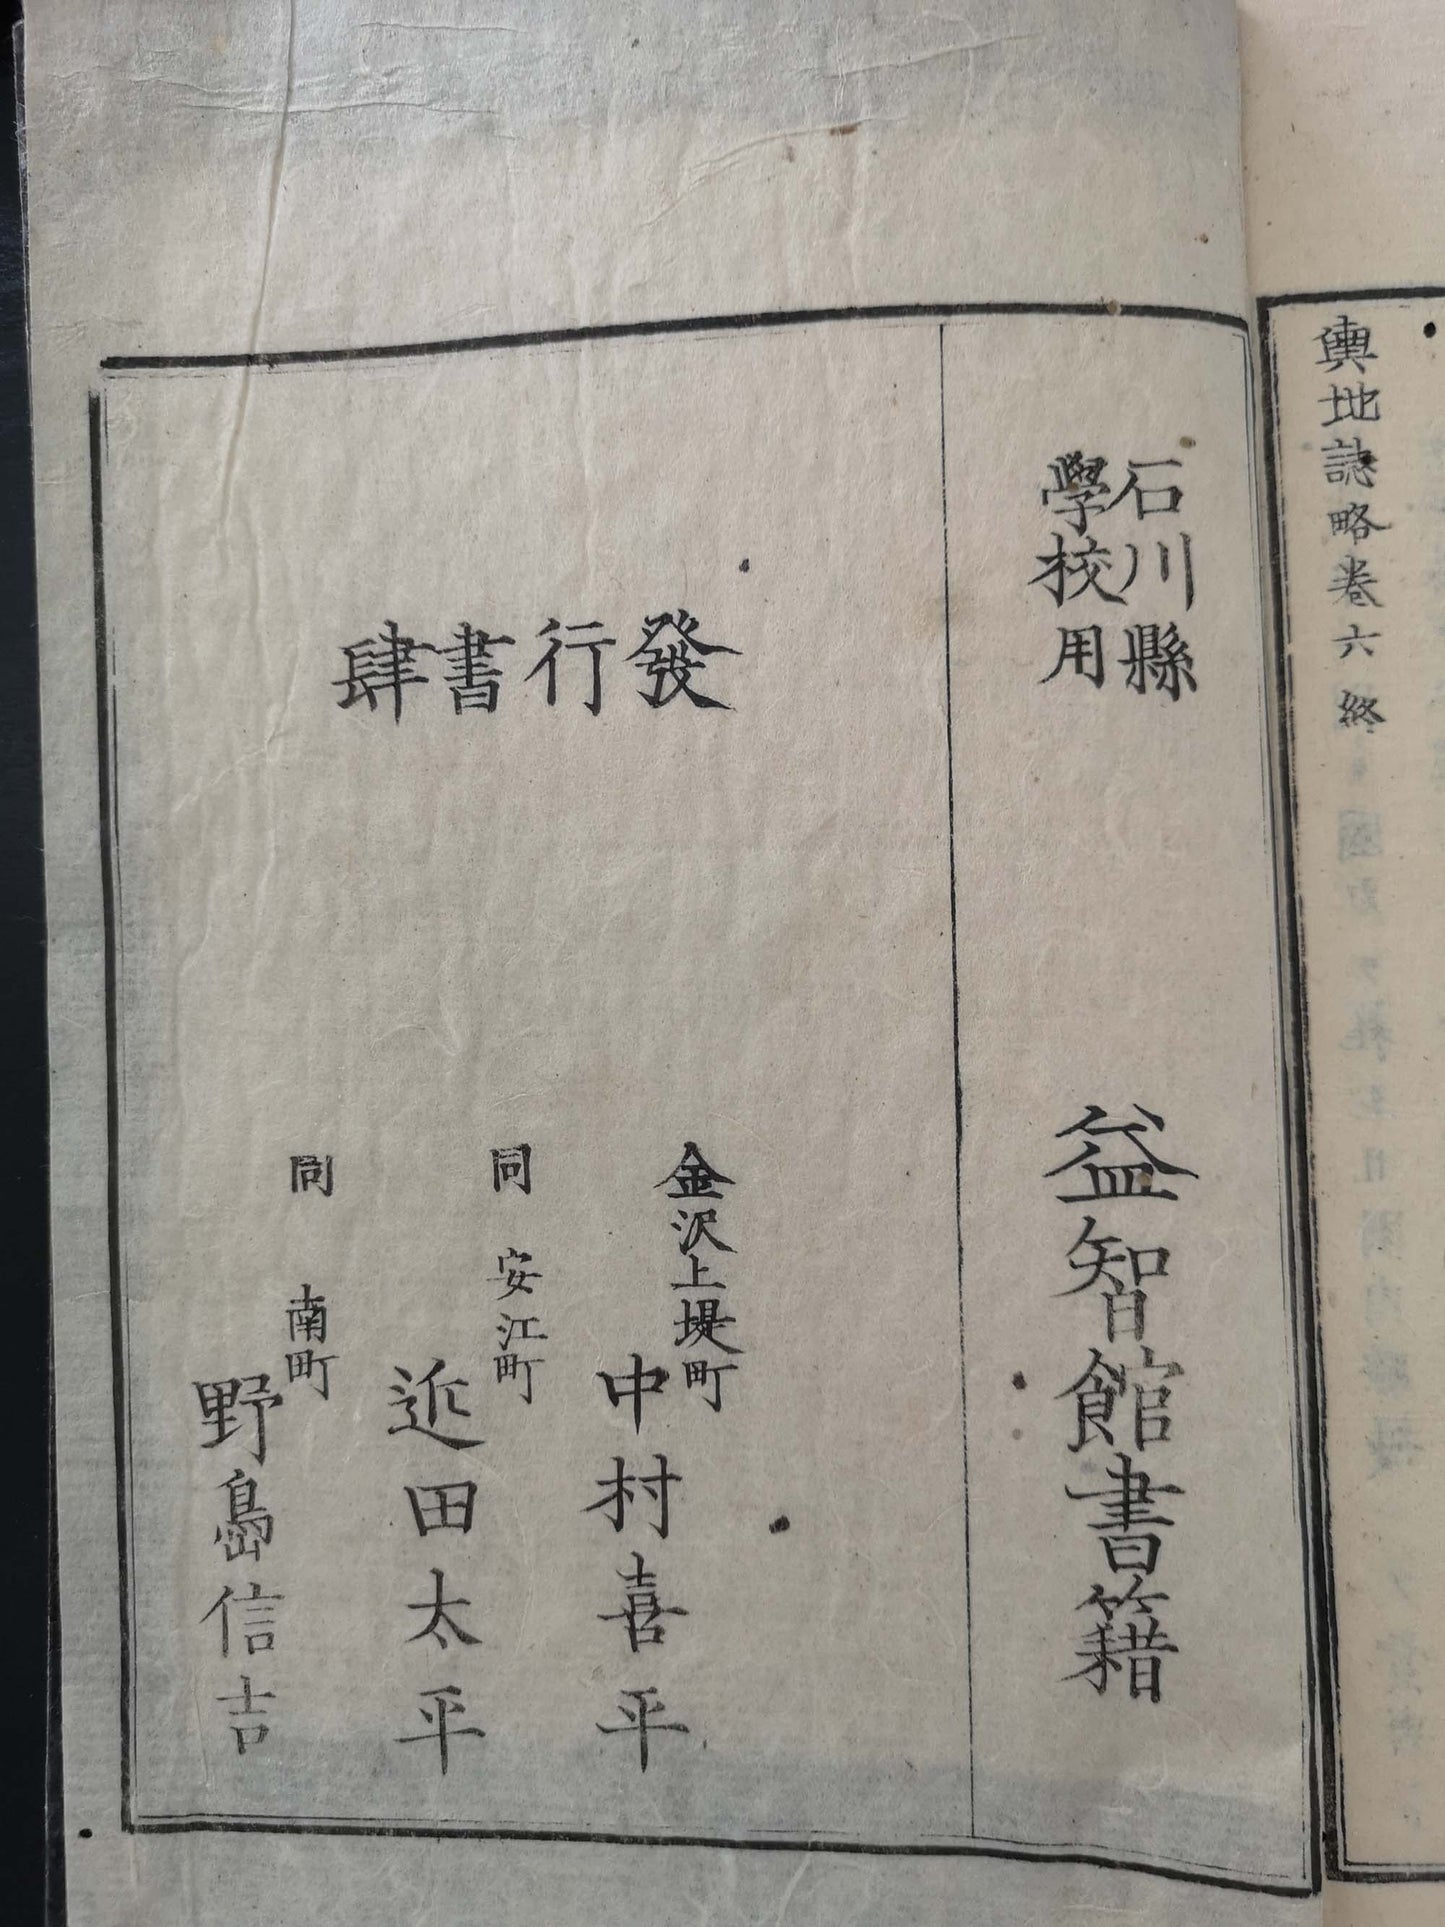 輿地誌略卷六終
石川縣
學校用
益智館書籍
發行書肆
金沢上堤町
中村喜平
同 安江町
近田太平
同 南町
野島信吉